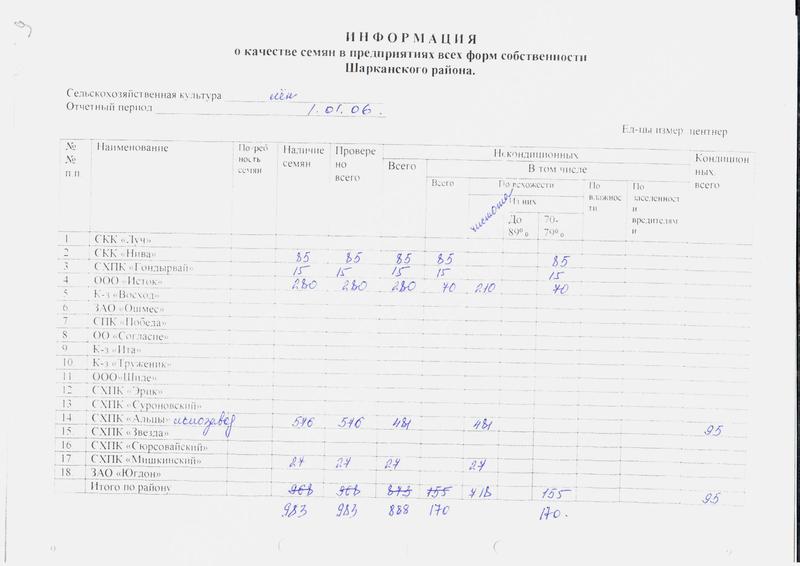 И Н Ф О Р М А Ц И Я
о качестве семян в предприятиях всех форм собственности
Шарканского района.
Сельскохозяйственная культура лён
Отчетный период 1.01.06.
Ед-цы измер. центнер
№ № п.п. Наименование Потреб ность семян Наличие семян Провере но всего Некондиционных Кондицион ных. всего
Всего В том числе
Всего чистота По всхожести По влажнос ти По заселенност и вредителям и
Из них
До 89% 70-79%
1 СКК «Луч»
2 СКК «Нива» 85 85 85 85 85
3 СХПК «Гондырвай» 15 15 15 15 15
4 ООО «Исток» 280 280 280 70 210 70
5 К-з «Восход»
6 ЗАО «Ошмес»
7 СПК «Победа»
8 ОО «Согласие»
9 К-з «Ита»
10 К-з «Труженик»
11 ООО«Шиле»
12 СХПК «Эрик»
13 СХПК «Суроновский»
14 СХПК «Альцы» льнозавод 576 576 481 481 95
15 СХПК «Звезда»
16 СХПК «Сюрсовайский»
17 СХПК «Мишкинский» 27 27 27 27
18 ЗАО «Югдон»
Итого по району 968 968 873 155 718 155 95
983 983 888 170 170.